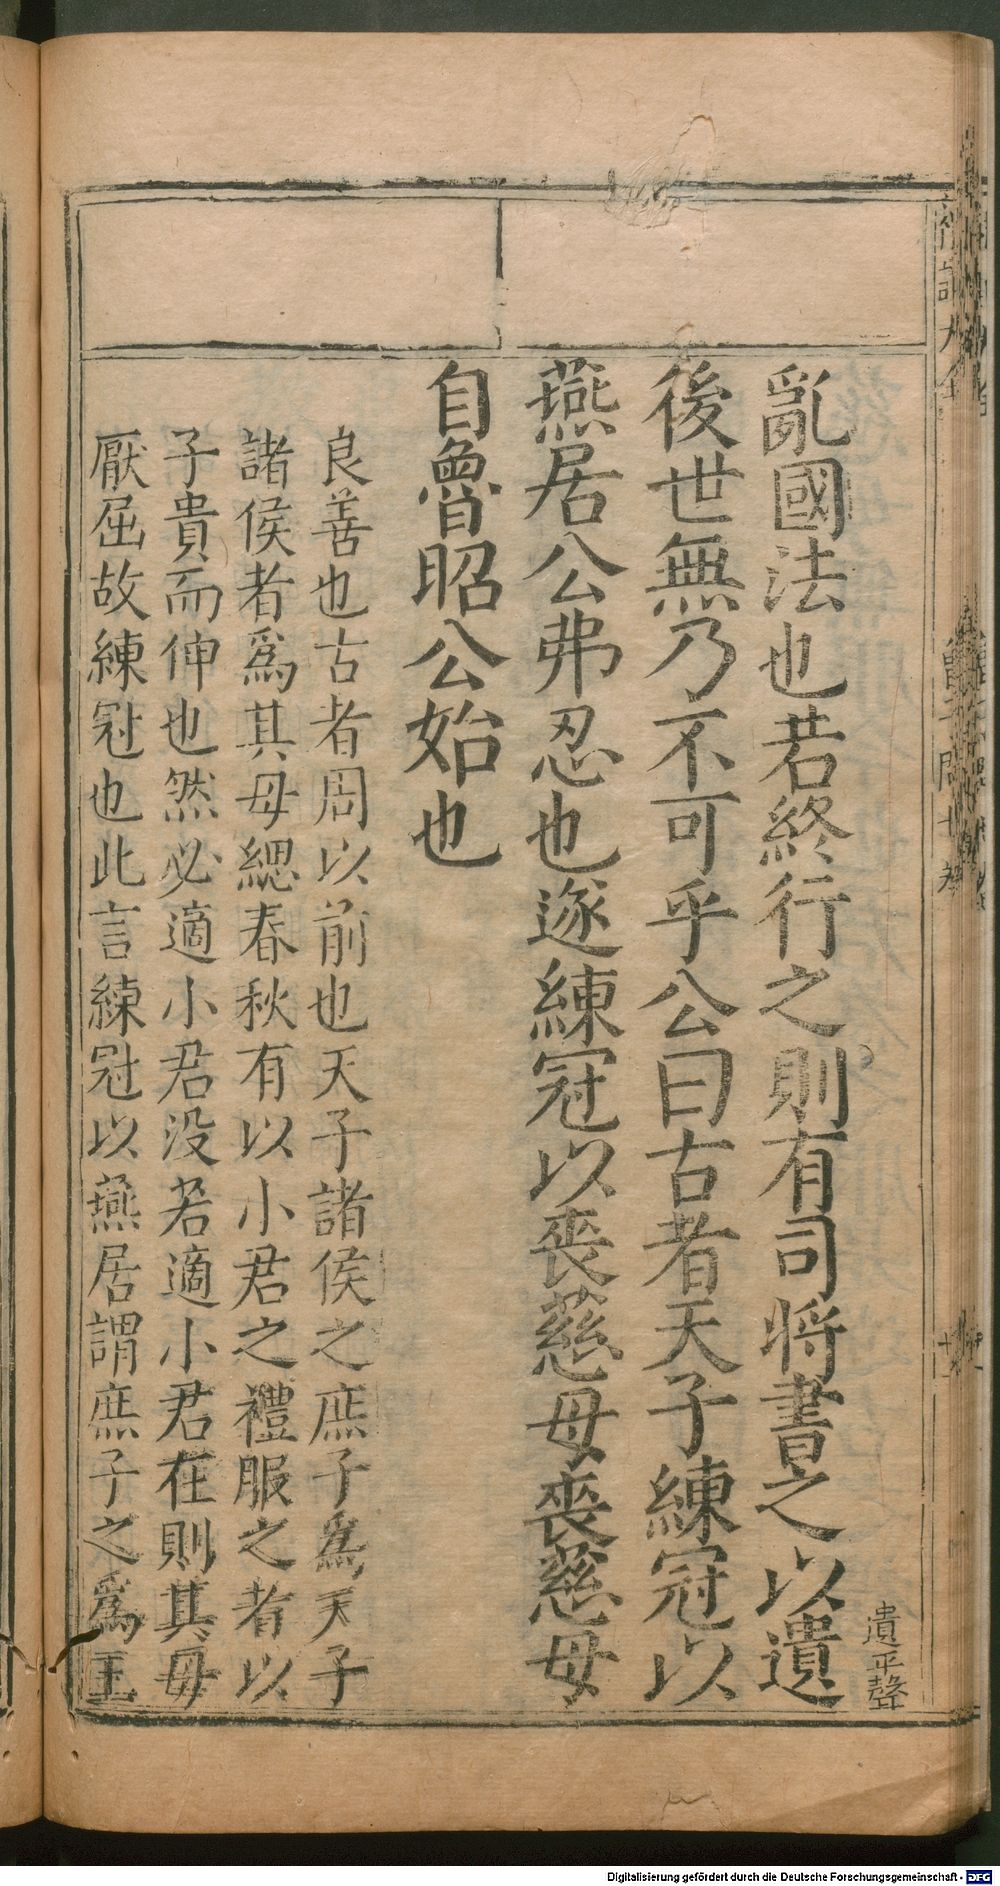 遺平聲
亂國法也若終行之則有司將書之以遺
後世無乃不可乎公曰古者天子練冠以
燕居公弗忍也遂練冠以喪慈母喪慈母
自魯昭公始也
良善也古者周以前也天子諸侯之庶子爲天子
諸侯者爲其母緦春秋有以小君之禮服之者以
子貴而伸也然必適小君没若適小君在則其母
厭屈故練冠也此言練冠以燕居謂庶子之爲王
Digitalisierung gefördert durch die Deutsche Forschungsgemeinschaft - DFG